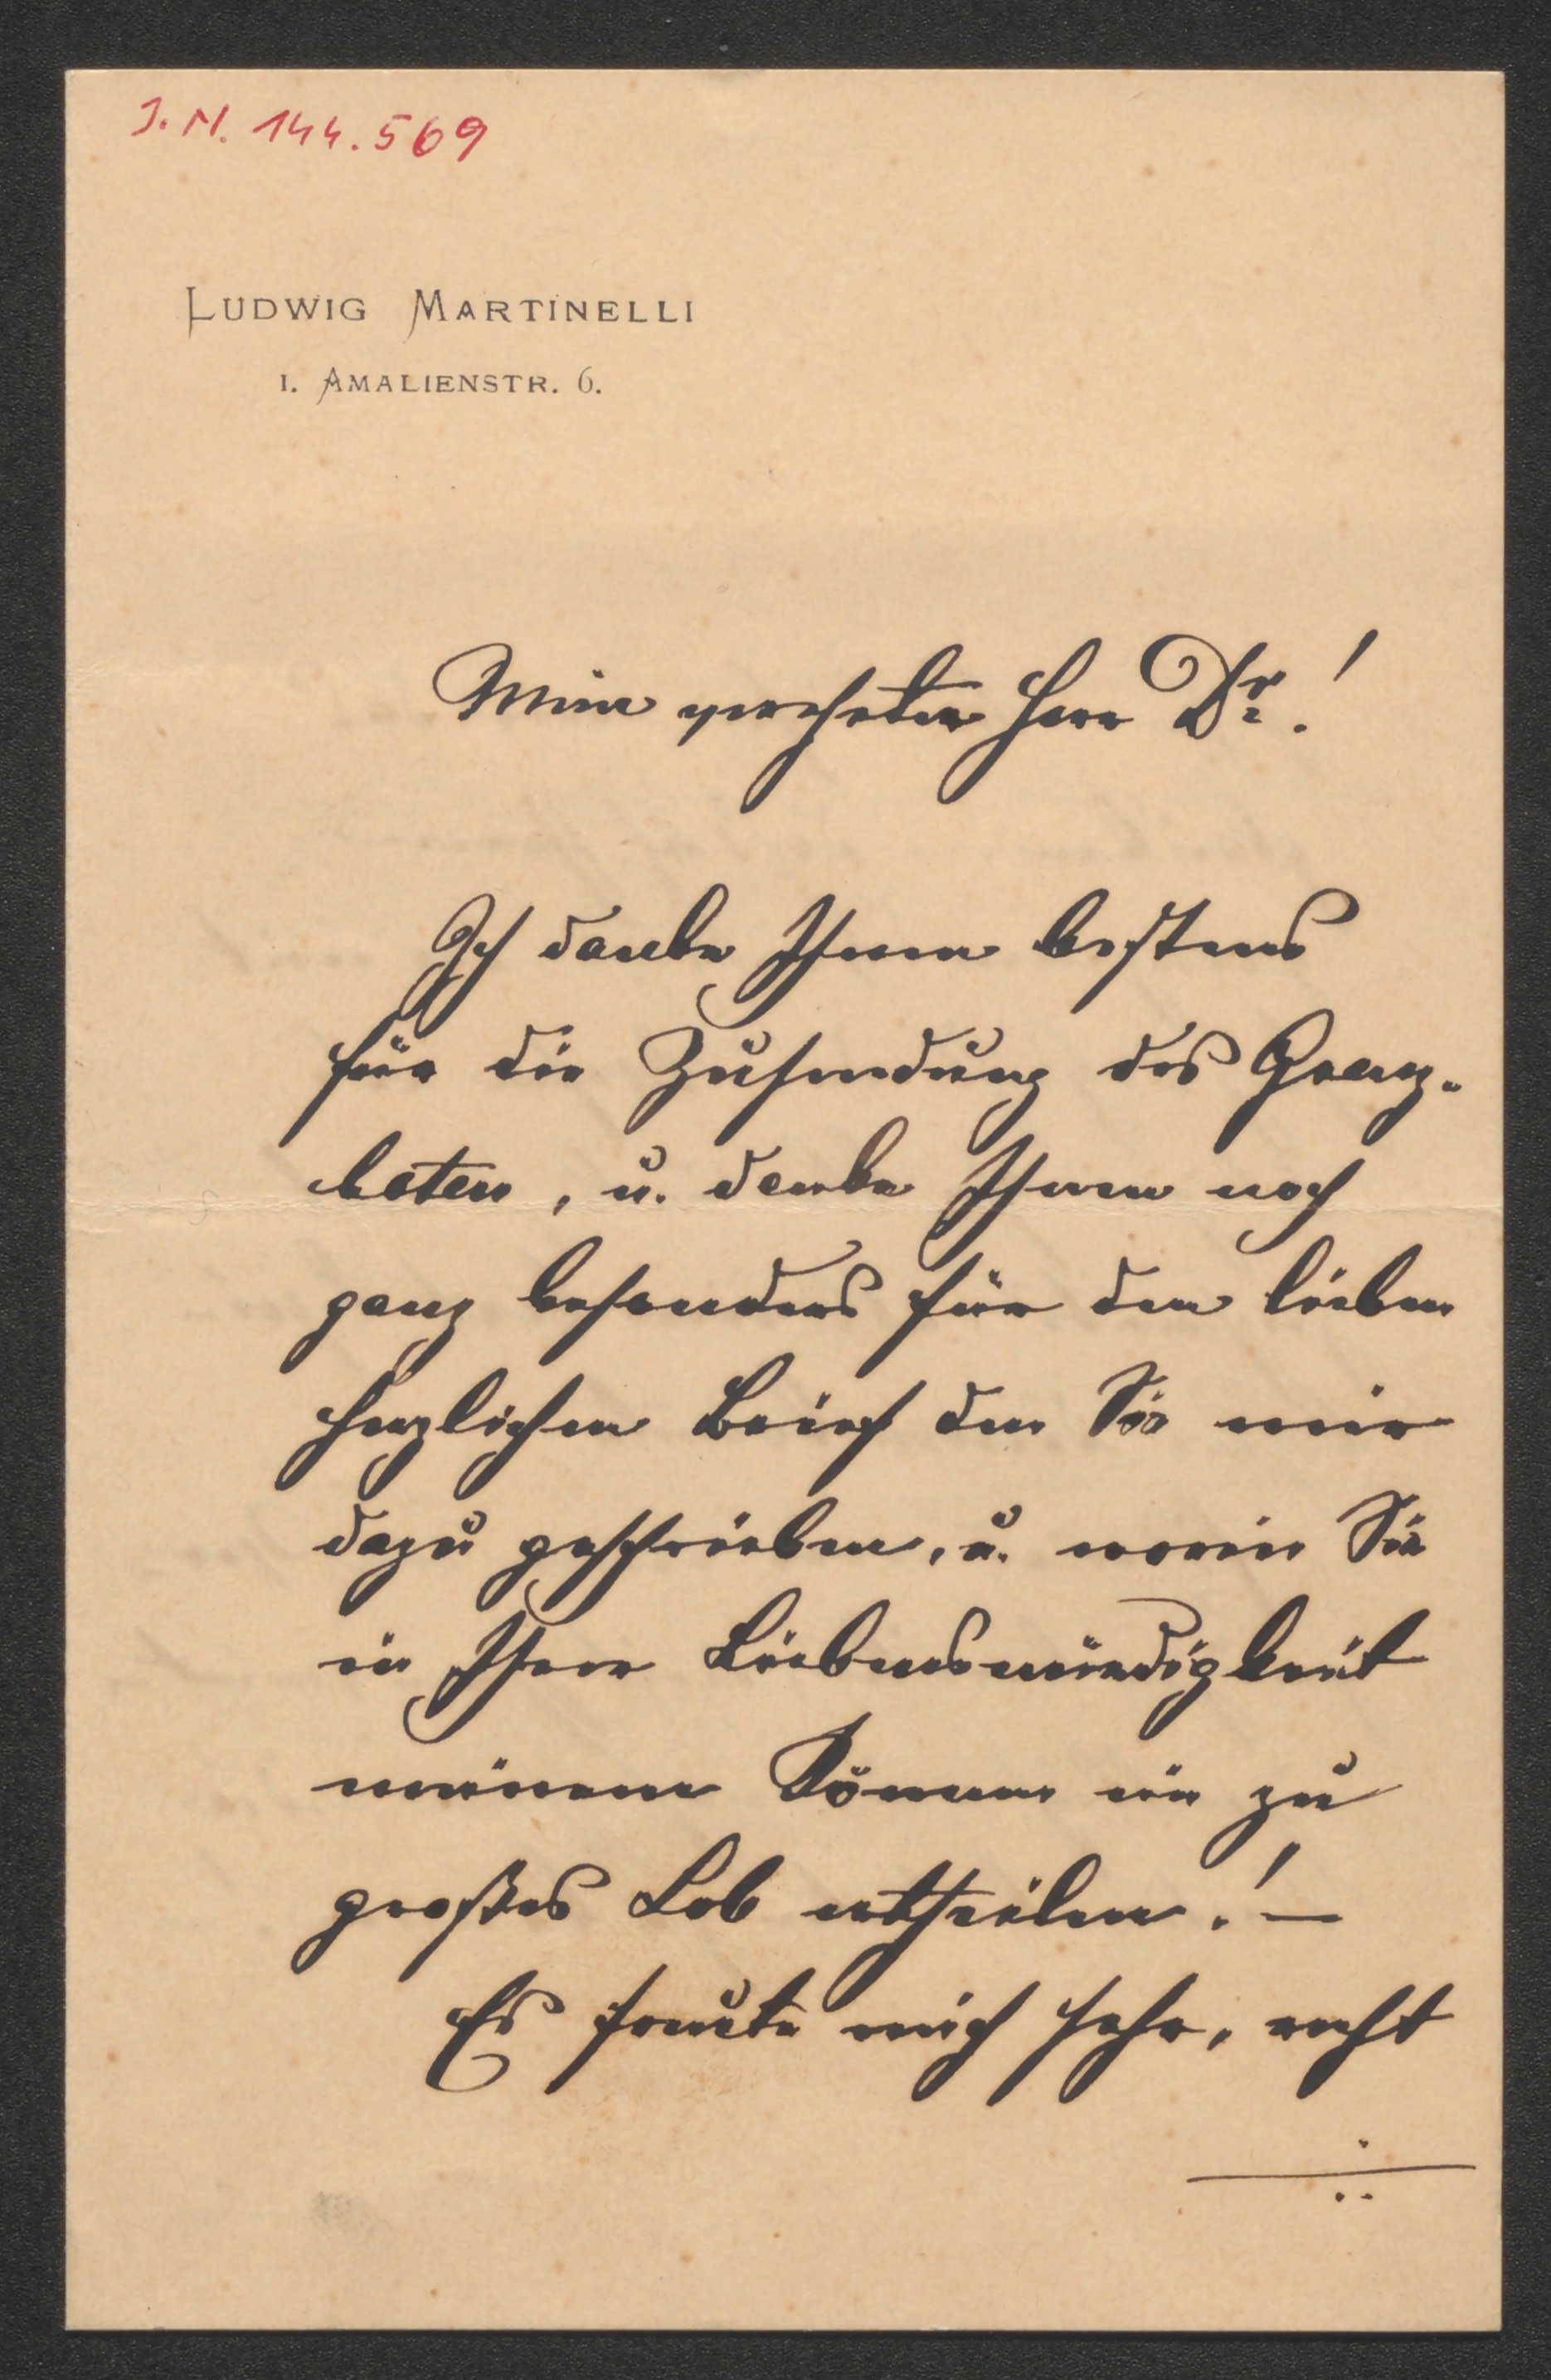 J. N. 144.569
LUDWIG MARTINELLI
I. AMALIENSTR. 6.
Mein verehrter Herr Dr.!
Ich danke Ihnen bestens
für die Zusendung des Grenz-
boten, u. danke Ihnen noch
ganz besonders für den lieben
herzlichen Brief den Sie mir
dazu geschrieben, u. worin Sie
in Ihrer Liebenswürdigkeit
meinem Können ein zu
großes Lob ertheilen! —
Es freute mich sehr, recht